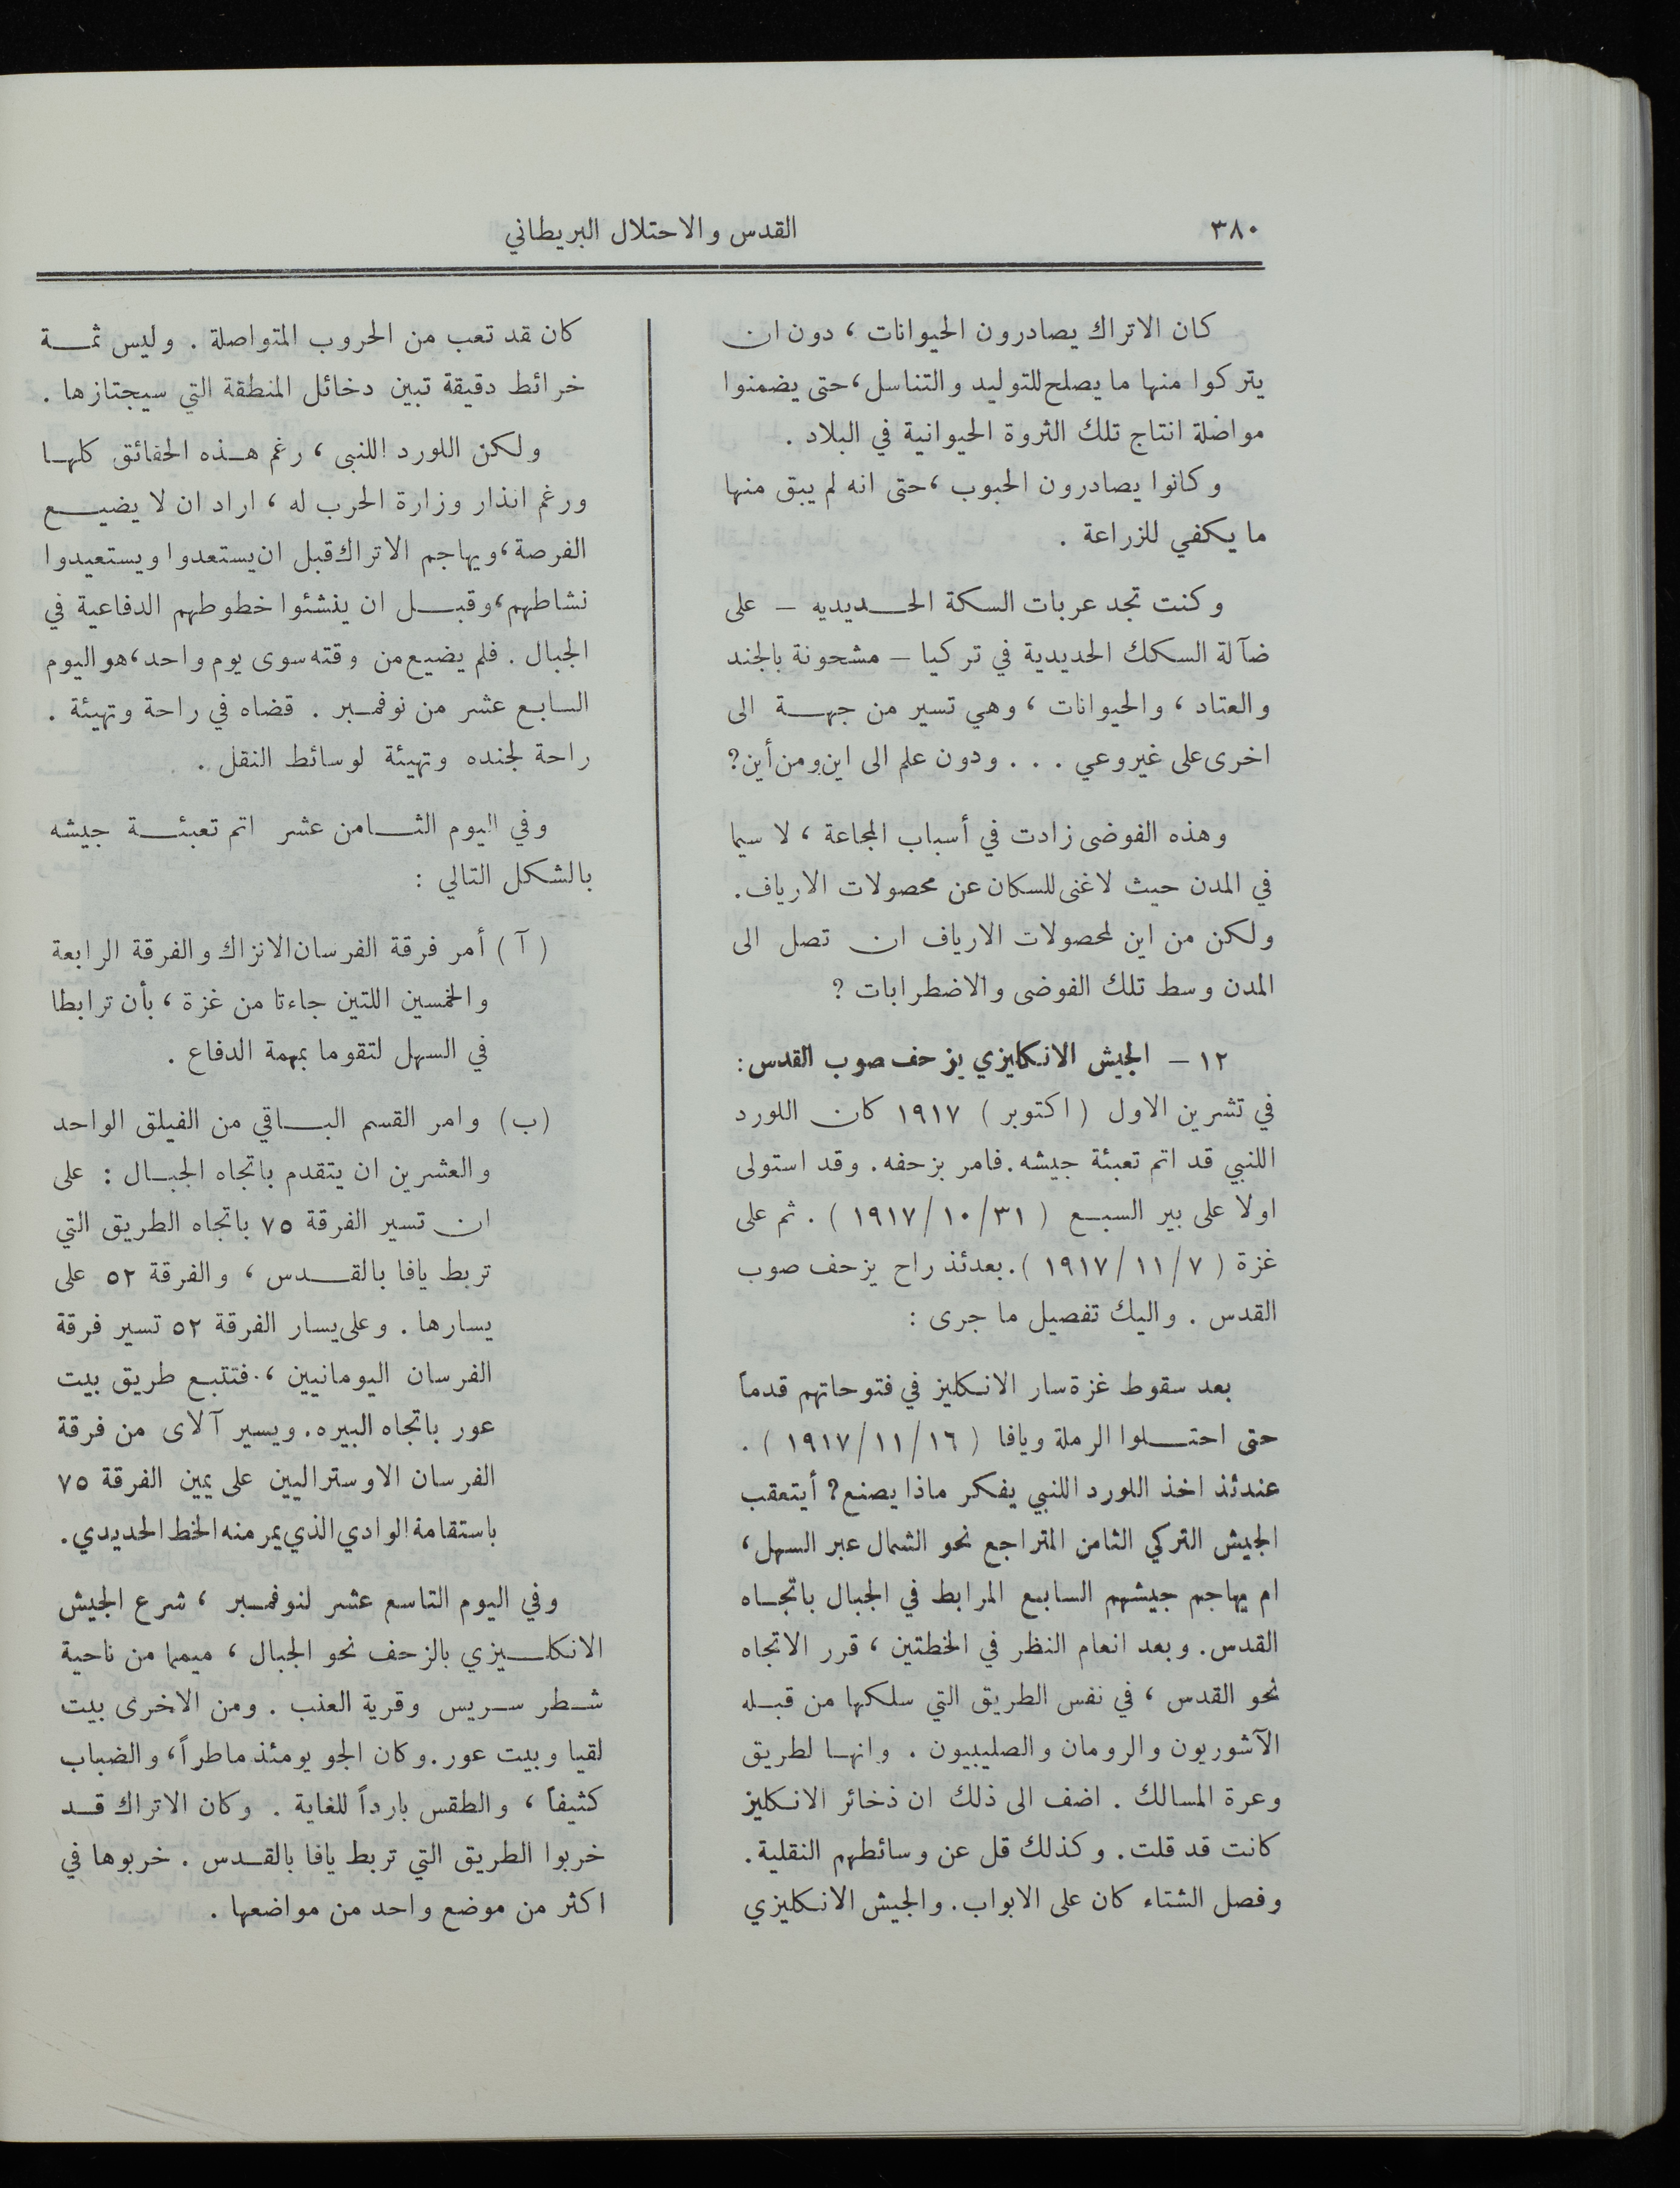 ٣٨٠
القدس والاحتلال البريطاني
كان الاتراك يصادرون الحيوانات ، دون ان
يتركوا منها ما يصلح للتوليد والتناسل ، حتى يضمنوا
مواضلة انتاج تلك الثروة الحيوانية في البلاد .
وكانوا يصادرون الحبوب ، حتى انه لم يبق منها
ما يكفي للزراعة .
وكنت تجد عربات السكة الحديديه – على
ضآلة السكك الحديدية في تركيا – مشحونة بالجند
والعتاد ، والحيوانات ، وهي تسير من جهة الى
اخرى على غير وعي . . . ودون علم الى اين ومن أين ?
وهذه الفوضى زادت في أسباب المجاعة ، لا سيما
في المدن حيث لاغنى للسكان عن محصولات الارياف .
ولكن من اين لمحصولات الارياف ان تصل الى
المدن وسط تلك الفوضى والاضطرابات ?
١٢ – الجيش الانكليزي يزحف صوب القدس :
في تشرين الاول ( اكتوبر ) ١٩١٧ كان اللورد
اللنبي قد اتم تعبئة جيشه . فامر بزحفه . وقد استولى
اولا على بير السبع ( ٣١/١٠/١٩١٧ ) . ثم على
غزة ( ٧/١١/١٩١٧ ) . بعدئذ راح يزحف صوب
القدس . واليك تفصيل ما جرى :
بعد سقوط غزة سار الانكليز في فتوحاتهم قدماً
حتى احتلوا الرملة ويافا ( ١٦/١١/١٩١٧ ) .
عندئذ اخذ اللورد اللنبي يفكر ماذا يصنع ? أيتعقب
الجيش التركي الثامن المتراجع نحو الشمال عبر السهل ،
ام يهاجم جيشهم السابع المرابط في الجبال باتجاه
القدس . وبعد انعام النظر في الخطتين ، قرر الاتجاه
نحو القدس ، في نفس الطريق التي سلكها من قبله
الآشوريون والرومان والصليبيون . وانها لطريق
وعرة المسالك . اضف الى ذلك ان ذخائر الانكليز
كانت قد قلت . وكذلك قل عن وسائطهم النقلية .
وفصل الشتاء كان على الابواب . والجيش الانكليزي
كان قد تعب من الحروب المتواصلة . وليس ثمة
خرائط دقيقة تبين دخائل المنطقة التي سيجتازها .
ولكن اللورد اللنبى ، رغم هذه الحقائق كلها
ورغم انذار وزارة الحرب له ، اراد ان لا يضيع
الفرصة ، ويهاجم الاتراك قبل ان يستعدوا ويستعيدوا
نشاطهم ، وقبل ان ينشئوا خطوطهم الدفاعية في
الجبال . فلم يضيع من وقته سوى يوم واحد ، هو اليوم
السابع عشر من نوفمبر . قضاه في راحة وتهيئة .
راحة لجنده وتهيئة لوسائط النقل .
وفي اليوم الثامن عشر اتم تعبئة جيشه
بالشكل التالي :
( آ ) أمر فرقة الفرسان الانزاك والفرقة الرابعة
والخمسين اللتين جاءتا من غزة ، بأن ترابطا
في السهل لتقوما بمهمة الدفاع .
(ب) وامر القسم الباقي من الفيلق الواحد
والعشرين ان يتقدم باتجاه الجبال : على
ان تسير الفرقة ٧٥ باتجاه الطريق التي
تربط يافا بالقدس ، والفرقة ٥٢ على
يسارها . وعلى يسار الفرقة ٥٢ تسير فرقة
الفرسان اليومانيين ، فتتبع طريق بيت
عور باتجاه البيره . ويسير آلاى من فرقة
الفرسان الاوستراليين على يمين الفرقة ٧٥
باستقامة الوادي الذي يمر منه الخط الحديدي .
وفي اليوم التاسع عشر لنوفمبر ، شرع الجيش
الانكليزي بالزحف نحو الجبال ، ميمما من ناحية
شطر سريس وقرية العنب . ومن الاخرى بيت
لقيا وبيت عور . وكان الجو يومئذ ماطراً ، والضباب
كثيفاً ، والطقس بارداً للغاية . وكان الاتراك قد
خربوا الطريق التي تربط يافا بالقدس . خربوها في
اكثر من موضع واحد من مواضعها .